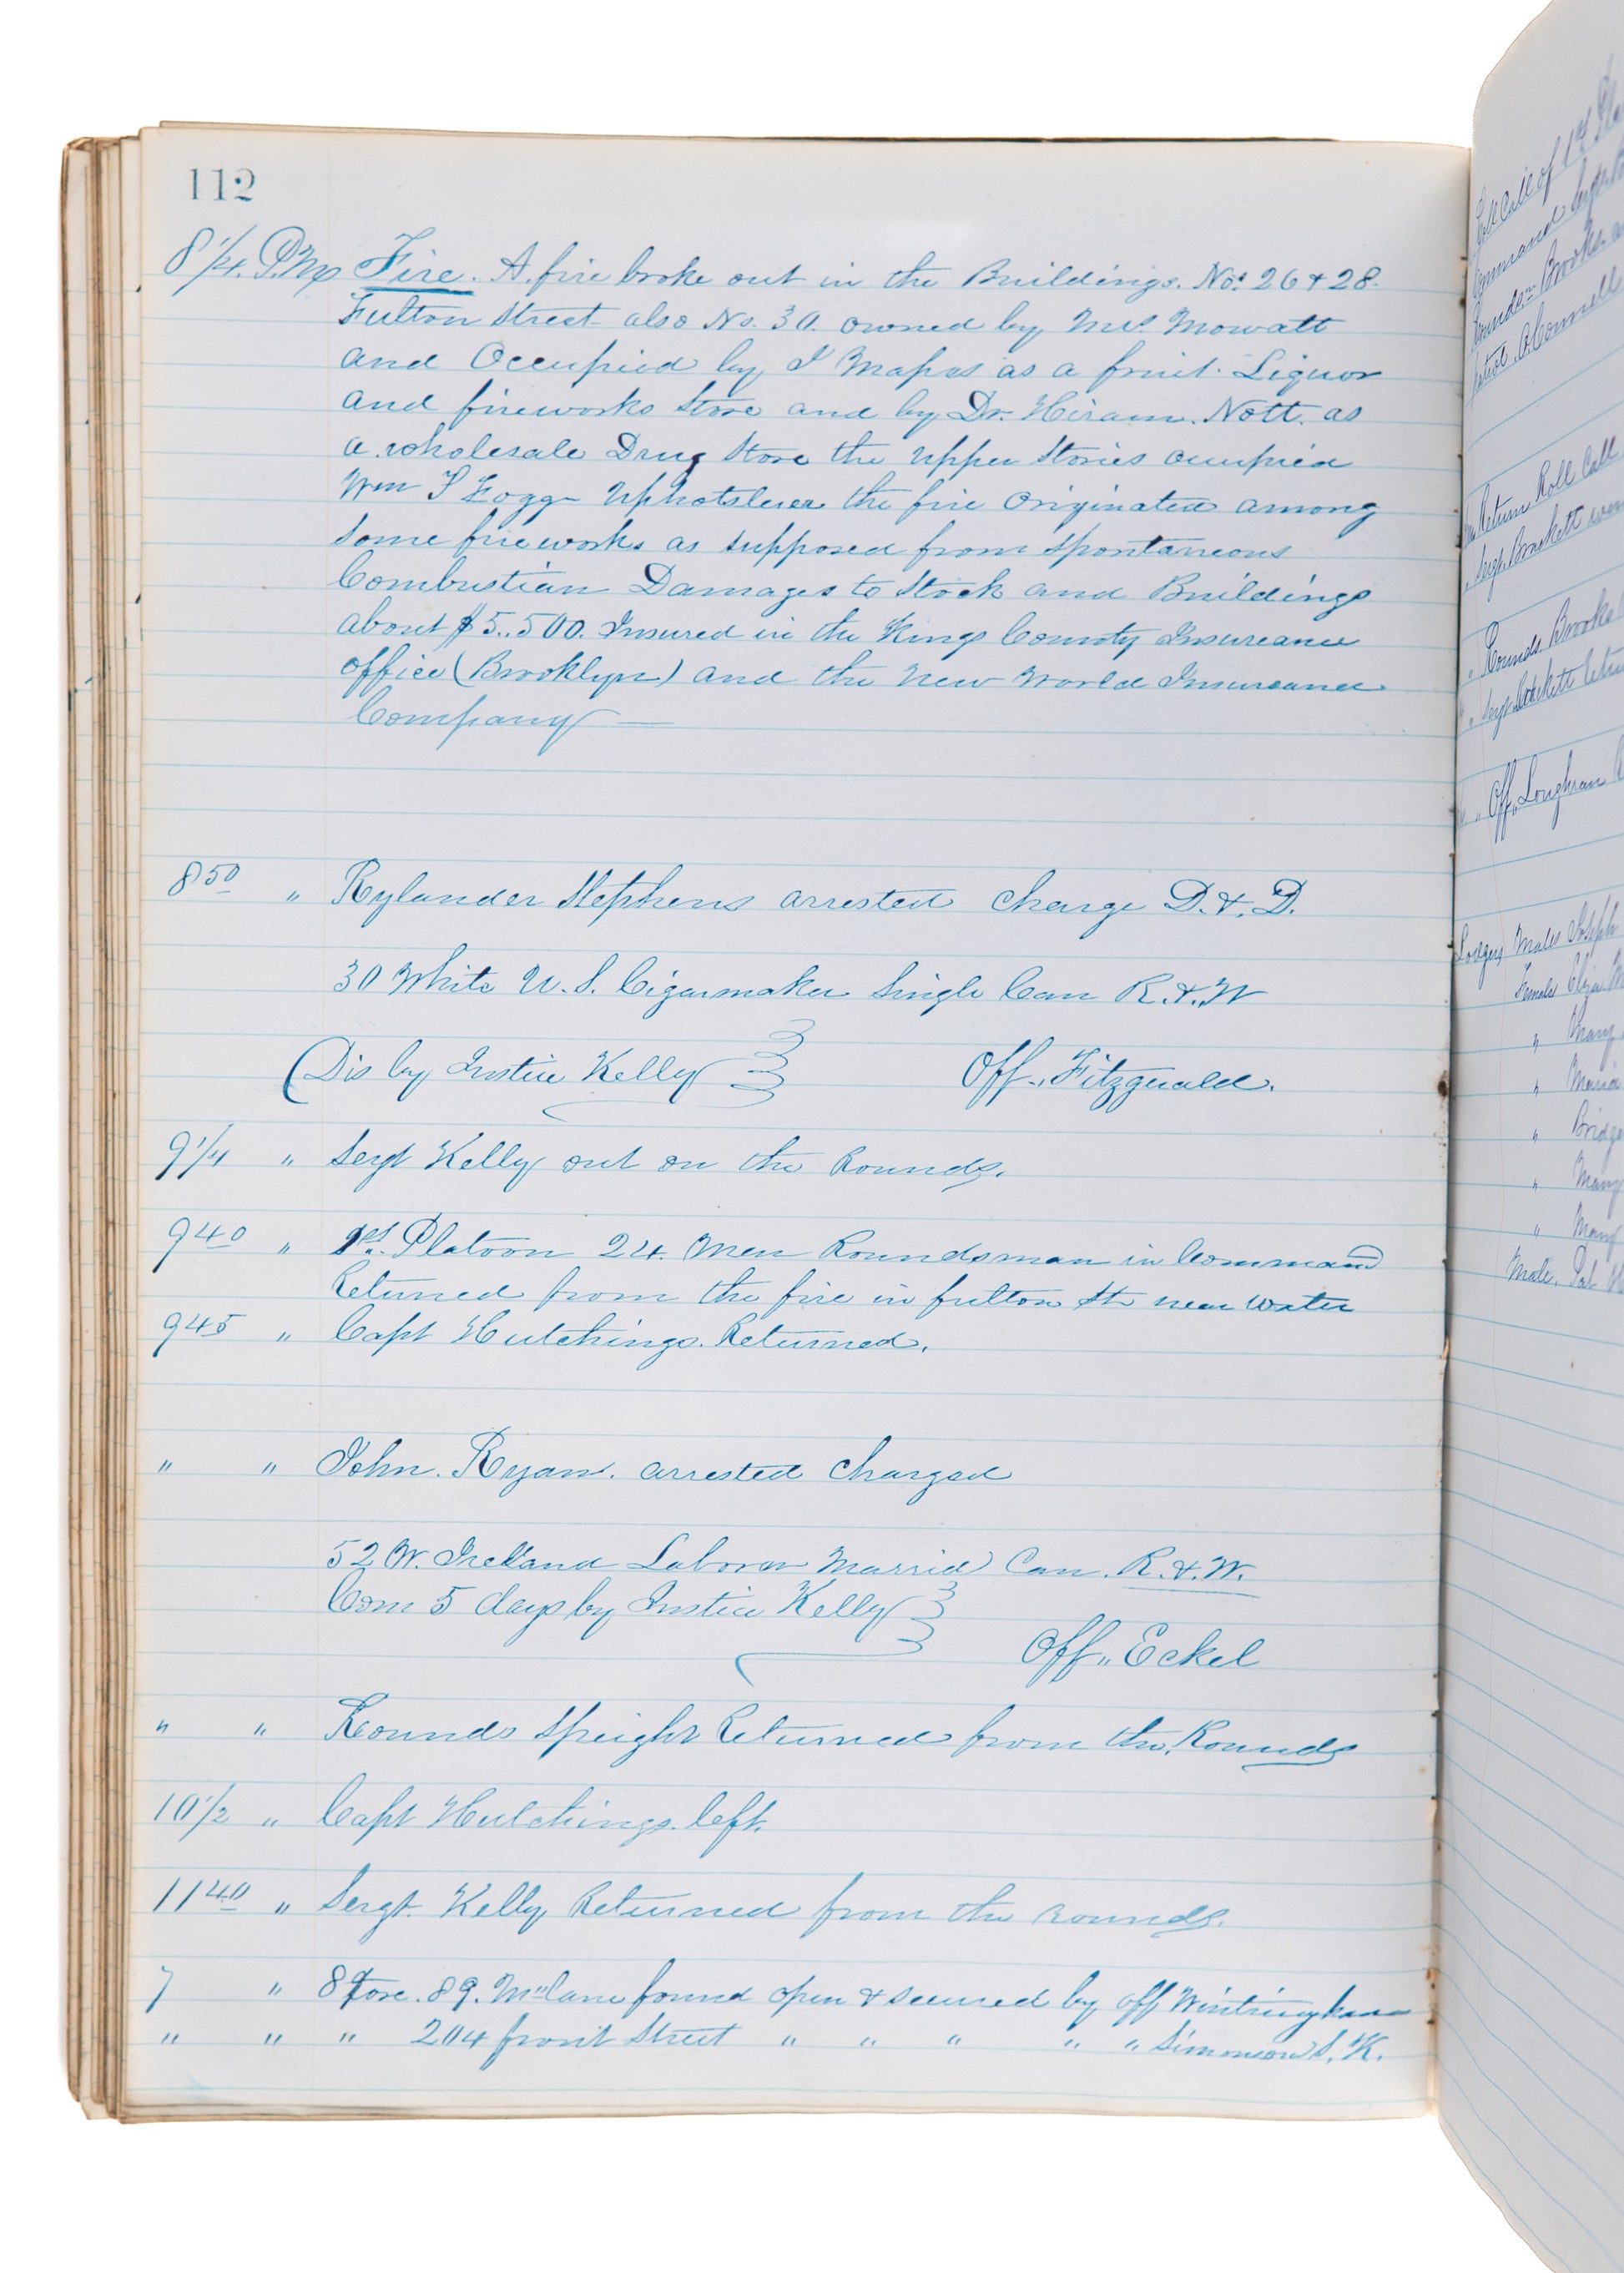 112
8 1/4 P.M. Fire. A fire broke out in the Buildings. Nos. 26 & 28.
Fulton Street also No. 30. owned by Mrs. Mowatt
and Occupied by J Mapes as a fruit. Liquor
and fireworks Store and by Dr. Hiram. Nott. as
a wholesale Drug Store the upper Stories occupied
Wm S Fogg Uphotsleuer the fire originated among
Some fireworks as supposed from spontaneous
Combustian Damages to Stock and Buildings
about $5..500. Insured in the Kings County Insureance
office (Brooklyn) and the New World Insureance
Company —
8 50 " Rylander Stephens arrested Charge D. & D.
30 White U. S. Cigarmaker Single Can R. & W
(Dis by Justice Kelly Off.. Fitzgerald.
9 1/4 " Sergt Kelly out on the Rounds.
9 40 " 1st. Platoon 24. Men Roundsman in Command
Returned from the fire in fulton St near Water
9 45 " Capt Hutchings. Returned.
" " John. Ryan. arrested Charged
52 W. Ireland Laborer Married Can. R. & W.
Com 5 days by Justice Kelly
Off,, Eckel
" " Rounds Speight Returned from the. Rounds
10 1/2 " Capt Hutchings. left.
11 40 " Sergt. Kelly Returned from the rounds.
7 " Store. 89. Mclane found open & secured by off Wintringham
" " " 204 front Street " " " " " Simonson S. K.
Roll Call of 1st
Command
Brooks
Connell
Return Roll Call
Sergt Brackett
" Rounds Brooks
" Sergt Brackett
" " Off,, Loughran
Lodgers Males Joseph
Females Eliza
" Mary
" Maria
" Bridge
" Mary
" Mary
Male. Pat